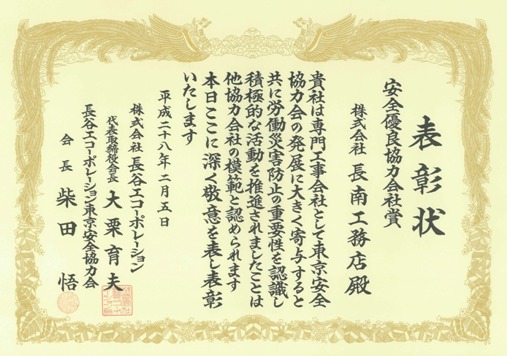 表彰状
安全優良協力会社賞
株式会社 長南工務店殿
貴社は専門工事会社として東京安全
協力会の発展に大きく寄与すると
共に労働災害防止の重要性を認識し
積極的な活動を推進されましたことは
他協力会社の模範と認められます
本日ここに深く敬意を表し表彰
いたします
平成二十八年二月五日
株式会社 長谷工コーポレーション
代表取締役会長 大栗育夫
長谷工コーポレーション東京安全協力会
会長 柴田悟